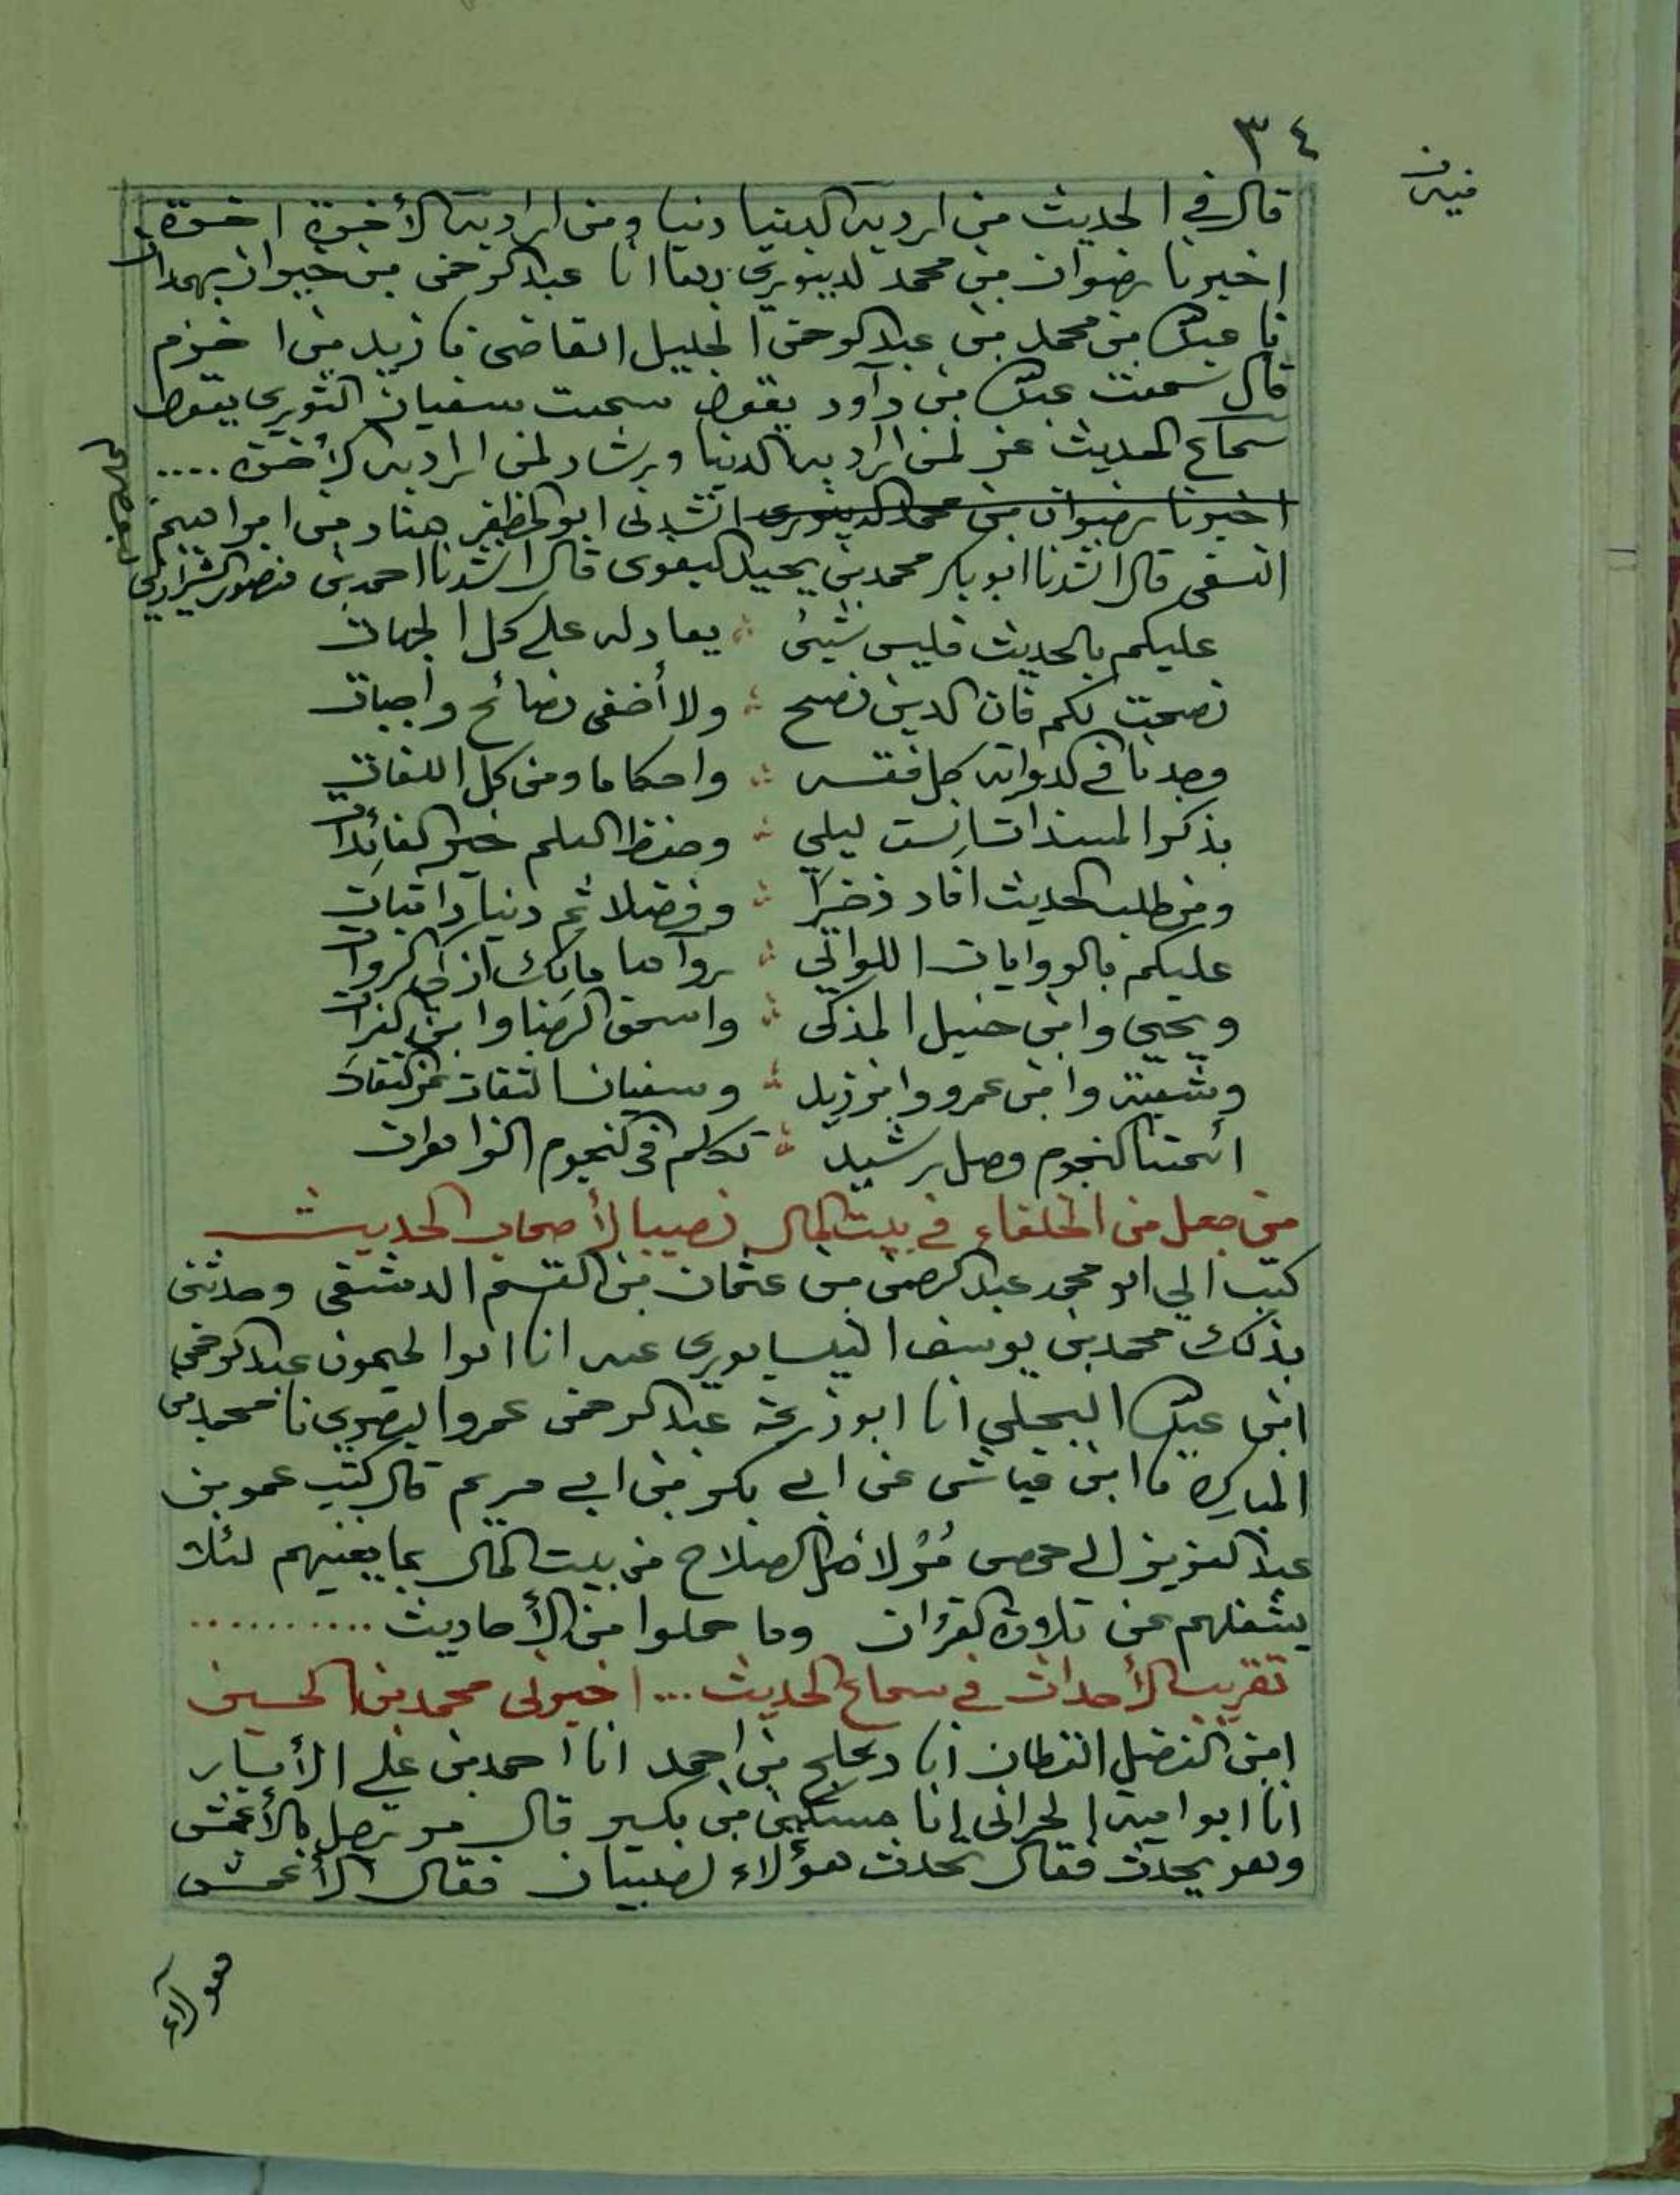 ٣٤
قال في الحديث من اراد به الدنيا دنيا ومن اراد به الأخرة اخرة
اخبرنا رضوان بن محمد الدينوري بها انا عبد الرحمن بن خيران بهمدان
نا عبد الله بن محمد بن عبد الرحمن الجليل القاضي نا زيد بن اخزم
قال سمعت عبد الله بن داود يقول سمعت سفيان الثوري يقول
سماع الحديث عز لمن اراد به الدنيا ورشاد لمن اراد به الأخرة ....
اخبرنا رضوان بن محمد الدينوري انشدني ابو المظفر هناد بن ابراهيم
النسفي قال انشدنا ابو بكر محمد بن يحيى قال انشدنا احمد بن منصور الشيرازي
عليكم بالحديث فليس شيئ ؞ يعادله على كل الجهات
نصحت لكم فان الدين نصح ؞ ولا أخفي نصائح واجبات
وجدنا في الرواية كل فقه ؞ واحكاما ومن كل اللغات
بذكر المسندات انست ليلي ؞ وحفظ العلم خير الفائدات
ومن طلب الحديث افاد ذخرا ؞ وفضلا ثم دينا ذا ثبات
عليكم بالروايات اللواتي ؞ رواها مالك ازكى الرواة
ويحيى وابن حنبل المزكى ؞ واسحق الرضا وابن الفرات
وشعبة وابن عمرو وابن زيد ؞ وسفيان الثقات عن الثقات
ائمتنا النجوم وصل رشيد ؞ تكلم في النجوم الزاهرات
من جعل من الخلفاء في بيت المال نصيبا لأصحاب الحديث
كتب الي ابو محمد عبد الرحمن بن عثمان بن القسم الدمشقي وحدثني
بذلك محمد بن يوسف النيسابوري عنه انا ابو الميمون عبد الرحمن
ابن عبد الله البجلي انا ابو زرعة عبد الرحمن عمرو البصري نا محمد بن
المبارك نا ابن عياش عن ابي بكر بن ابي مريم قال كتب عمر بن
عبد العزيز الى حمص مر لأهل الصلاح من بيت المال بما يغنيهم لئلا
يشغلهم عن تلاوة القرأن وما حملوا من الأحاديث ...........
تقريب الأحداث في سماع الحديث ... اخبرني محمد بن الحسين
ابن الفضل القطان انا دعلج بن احمد انا احمد بن علي الأبار
انا ابو امية الحراني انا مسكين بن بكير قال مر رجل بالأعمش
وهو يحدث فقال تحدث هؤلاء الصبيان فقال الأعمش
هؤلاء